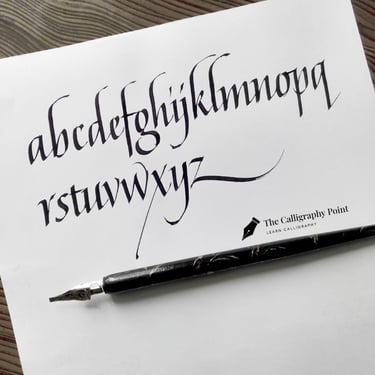 abcdefghijklmnopq
rstuvwxyz
The Calligraphy Point
LEARN CALLIGRAPHY